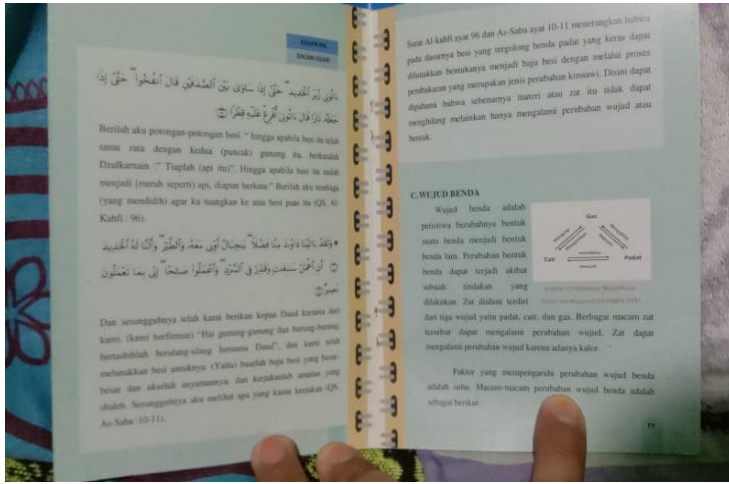 KAJIAN IPA
DALAM ISLAM
ءَاتُونِى زُبَرَ ٱلْحَدِيدِ ۖ حَتَّىٰٓ إِذَا سَاوَىٰ بَيْنَ ٱلصَّدَفَيْنِ قَالَ ٱنفُخُوا۟ ۖ حَتَّىٰٓ إِذَا
جَعَلَهُۥ نَارًا قَالَ ءَاتُونِىٓ أُفْرِغْ عَلَيْهِ قِطْرًا
Berilah aku potongan-potongan besi. " hingga apabila besi itu telah
sama rata dengan kedua (puncak) gunung itu, berkatalah
Dzulkarnain :" Tiuplah (api itu)". Hingga apabila besi itu sudah
menjadi (merah seperti) api, diapun berkata:" Berilah aku tembaga
(yang mendidih) agar ku tuangkan ke atas besi panas itu (QS. Al-
Kahfi : 96).
۞ وَلَقَدْ ءَاتَيْنَا دَاوُۥدَ مِنَّا فَضْلًا ۖ يَٰجِبَالُ أَوِّبِى مَعَهُۥ وَٱلطَّيْرَ ۖ وَأَلَنَّا لَهُ ٱلْحَدِيدَ
أَنِ ٱعْمَلْ سَٰبِغَٰتٍ وَقَدِّرْ فِى ٱلسَّرْدِ ۖ وَٱعْمَلُوا۟ صَٰلِحًا ۖ إِنِّى بِمَا تَعْمَلُونَ
بَصِيرٌ
Dan sesungguhnya telah kami berikan kepas Daud karunia dari
kami. (kami berfirman) "Hai gunung-gunung dan burung-burung,
bertasbihlah berulang-ulang bersama Daud", dan kami telah
melunakkan besi untuknya. (Yaitu) buatlah baju besi yang besar-
besar dan ukurlah anyamannya, dan kerjakanlah amalan yang
shaleh. Sesungguhnya aku melihat apa yang kamu kerjakan (QS.
As-Saba :10-11).
Surat Al-kahfi ayat 96 dan As-Saba ayat 10-11 menerangkan bahwa
pada dasarnya besi yang tergolong benda padat yang keras dapat
dilunakkan bentuknya menjadi baju besi dengan melalui proses
pembakaran yang merupakan jenis perubahan kimiawi. Disini dapat
dipahami bahwa sebenarnya materi atau zat itu tidak dapat
menghilang melainkan hanya mengalami perubahan wujud atau
bentuk.
C. WUJUD BENDA
Wujud benda adalah
peristiwa berubahnya bentuk
suatu benda menjadi bentuk
benda lain. Perubahan bentuk
benda dapat terjadi akibat
sebuah tindakan yang
dilakukan. Zat dialam terdiri
Gas
Cair
Padat
dari tiga wujud yaitu padat, cair, dan gas. Berbagai macam zat
tersebut dapat mengalami perubahan wujud. Zat dapat
mengalami perubahan wujud karena adanya kalor.
Faktor yang mempengaruhi perubahan wujud benda
adalah suhu. Macam-macam perubahan wujud benda adalah
sebagai berikut:
19